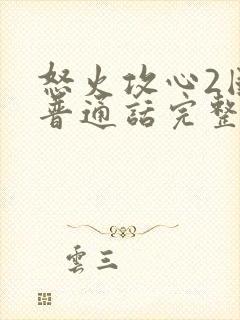 怒火攻心2
普通話完整
雲三